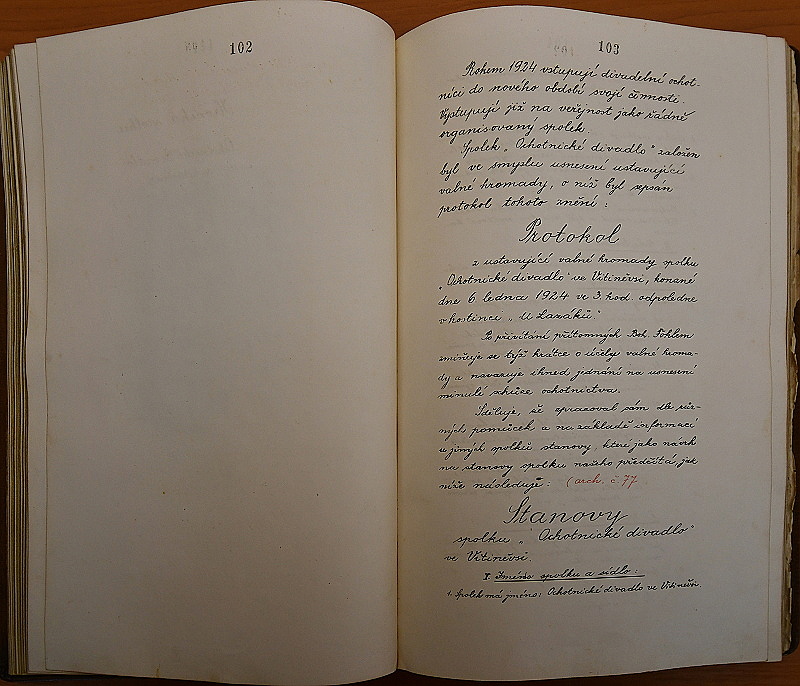 102
103
Rokem 1924 vstupují divadelní ochot-
níci do nového období svojí činnosti.
Vystupují již na veřejnost jako řádně
organisovaný spolek.
Spolek „Ochotnické divadlo" založen
byl ve smyslu usnesení ustavující
valné hromady, o níž byl sepsán
protokol tohoto znění:
Protokol
z ustavující valné hromady spolku
„Ochotnické divadlo" ve Vitiněvsi, konané
dne 6. ledna 1924 ve 3. hod. odpoledne
v hostinci „U Lazáků."
Po přivítání přítomných Boh. Foklem
zmiňuje se týž krátce o účelu valné hroma-
dy a navazuje ihned jednání na usnesení
minulé schůze ochotnictva.
Sděluje, že zpracoval sám dle růz-
ných pomůcek a na základě informací
u jiných spolků stanovy, které jako návrh
na stanovy spolku našeho předčítá, jak
níže následuje: (arch. č. 77
Stanovy
spolku „Ochotnické divadlo"
ve Vitiněvsi.
I. Jméno spolku a sídlo:
1. Spolek má jméno: Ochotnické divadlo ve Vitiněvsi.